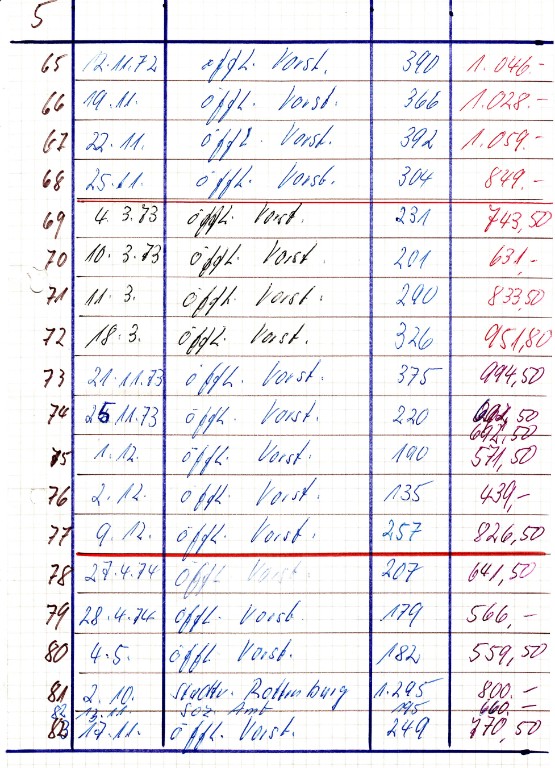 5
65 12.11.72 öffl. Vorst. 390 1.046.-
66 19.11. öffl. Vorst. 366 1.028.-
67 22.11. öffl. Vorst. 392 1.059.-
68 25.11. öffl. Vorst. 304 849.-
69 4.3.73 öffl. Vorst. 231 743,50
70 10.3.73 öffl. Vorst. 201 631.-
71 11.3. öffl. Vorst. 290 833,50
72 18.3. öffl. Vorst. 326 951,80
73 21.11.73 öffl. Vorst. 375 994,50
74 25.11.73 öffl. Vorst. 220 692,50
692,50
75 1.12. öffl. Vorst. 190 571,50
76 2.12. öffl. Vorst. 135 439,-
77 9.12. öffl. Vorst. 257 826,50
78 27.4.74 öffl. Vorst. 207 641,50
79 28.4.74 öffl. Vorst. 179 566,-
80 4.5. öffl. Vorst. 182 559,50
81 2.10. Rottenburg 1.295 800.-
82 13.11. Soz. Amt 195 660.-
83 17.11. öffl. Vorst. 249 770,50